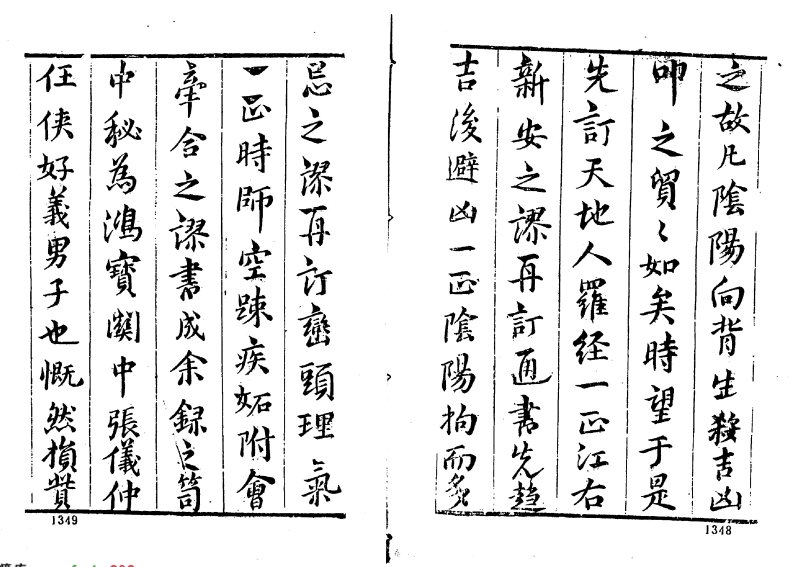 之故凡陰陽向背生殺吉凶
叩之貿〻如矣時望于是
先訂天地人羅经一正江右
新安之謬再訂通書先趋
吉後避凶一正陰陽拘而多
1348
忌之謬再訂巒頭理氣
一正時師空踈疾妬附會
牽合之謬書成余録之笥
中秘為鴻寶関中張儀仲
任侠好義男子也慨然捐貲
1349